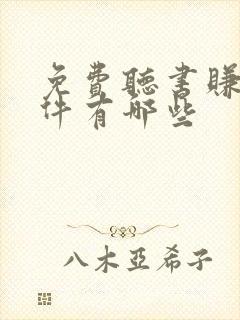 免費聽書賺
件有哪些
八木亞希子